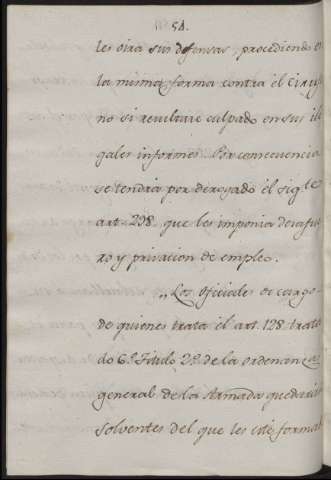 54.
les oira sus defensas, procediendo en
la misma forma contra el Ciruja
no si resultare culpado en sus ile
gales informes. Por consecuencia
se tendrá por derogado el sigte
art. 298. que les imponia desafue
ro y privacion de empleo.
„Los Oficiales de cargo
de quienes trata el art. 128. trata
do 6º Titulo 2º de la ordenanza
general de la Armada quedarán
solventes del que les esté forma